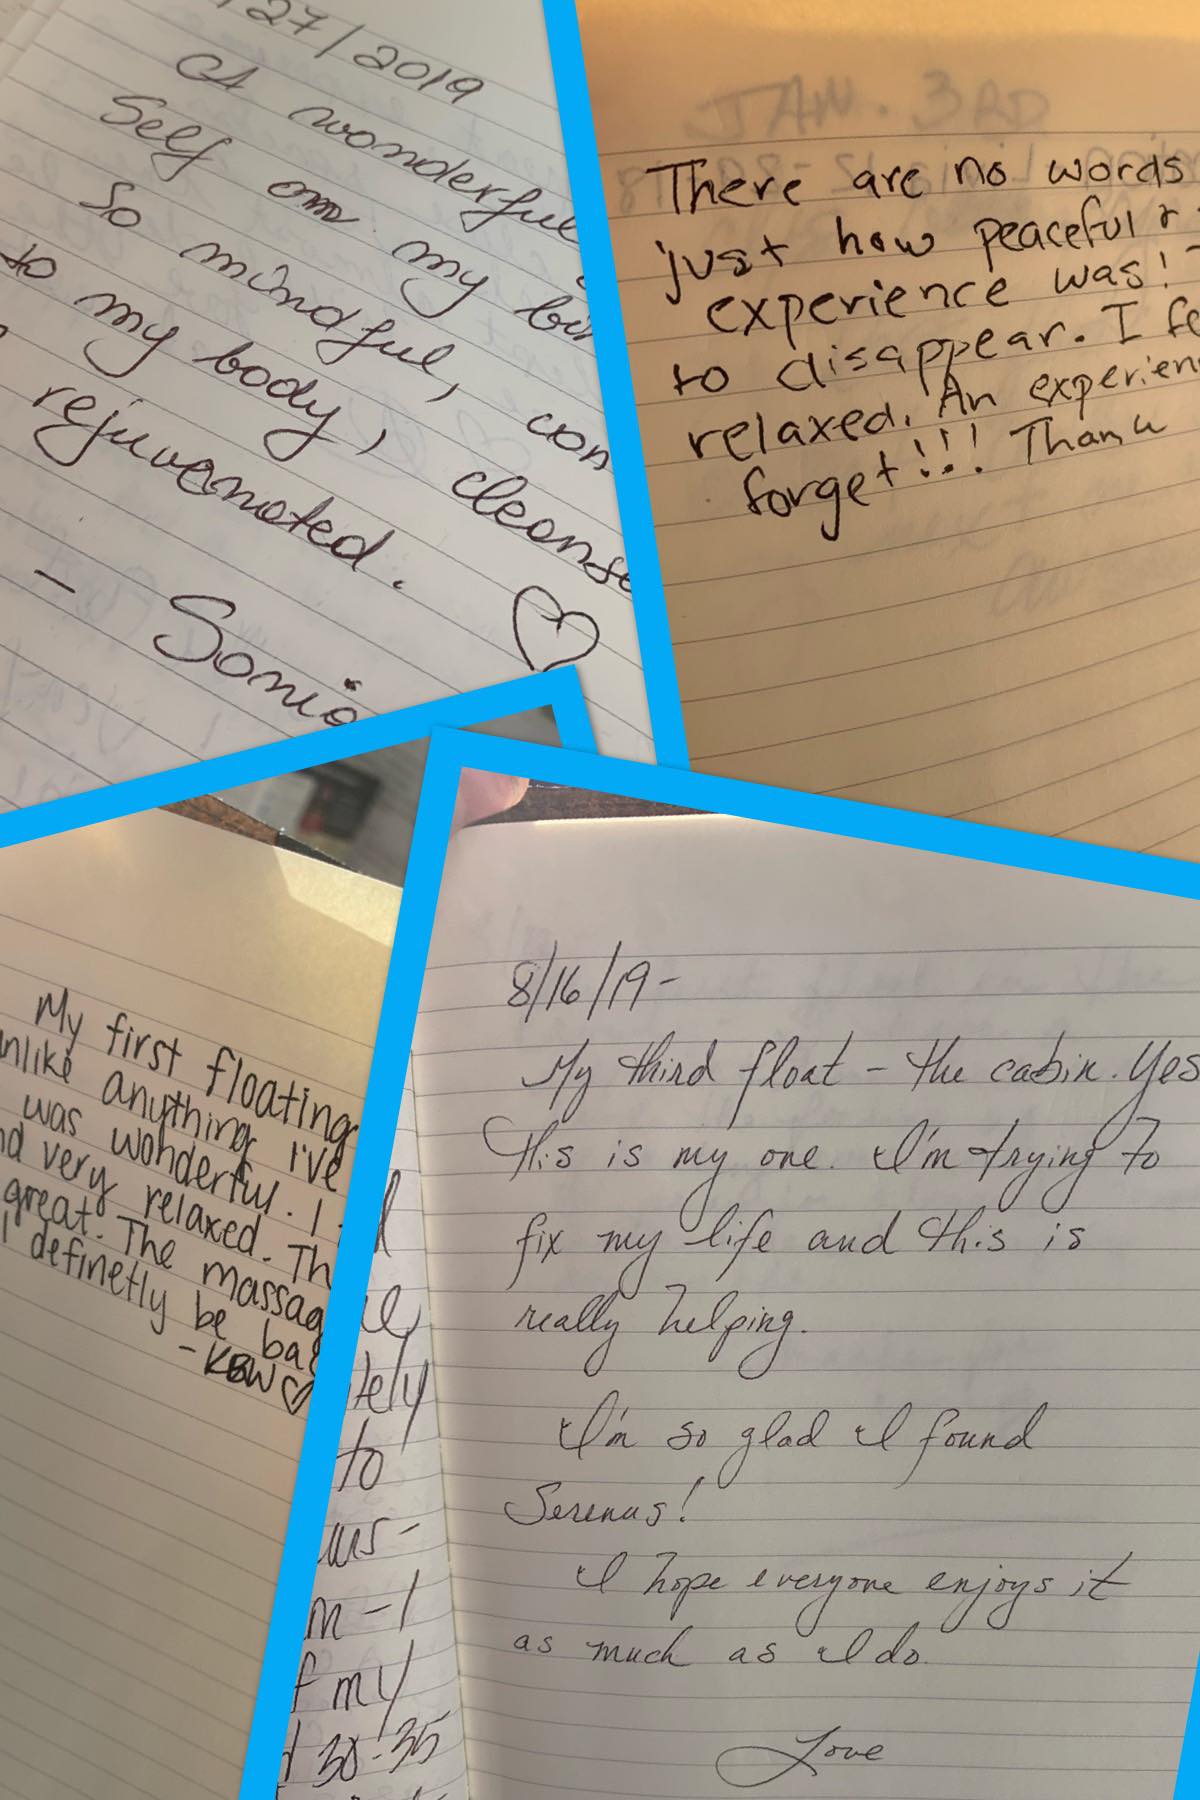 /27/2019
A wonderful
Self on my
So mindful, con
to my body, cleanse
rejuvenated.
- Sonia
JAN. 3RD
There are no words
just how peaceful &
experience was!
to disappear. I fe
relaxed. An experien
forget!!! Thank
My first floating
nlike anything I've
was wonderful. I
nd very relaxed. Th
great. The massag
I definetly be ba
- KBW
ely
to
m - I
f my
d 30-35
8/16/19-
My third float - the cabin. Yes
this is my one. I'm trying to
fix my life and this is
really helping.
I'm so glad I found
Serenus!
I hope everyone enjoys it
as much as I do.
Love